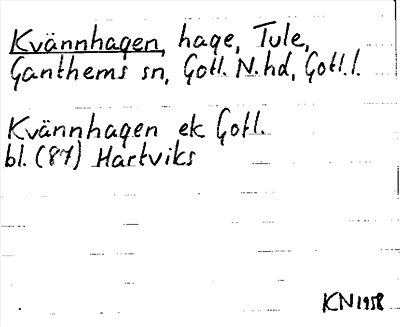 Kvännhagen, hage, Tule,
Ganthems sn, Gotl. N. hd, Gotl. l.
Kvännhagen ek Gotl.
bl. (87) Hartviks
KN 1958